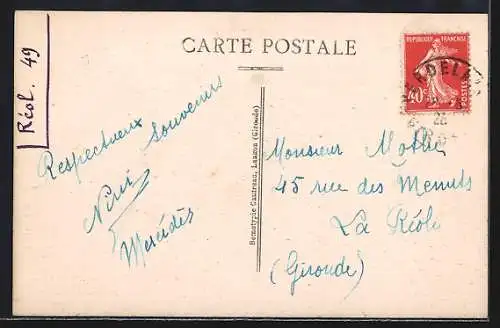 Réol. 49
CARTE POSTALE
REPUBLIQUE FRANÇAISE
40c
POSTES
26
Respectueux
Souvenirs
Nini
Mercédès
Bemotypie Gautreau, Langon (Gironde)
Monsieur
45 rue des Menuts
La Réole
(Gironde)